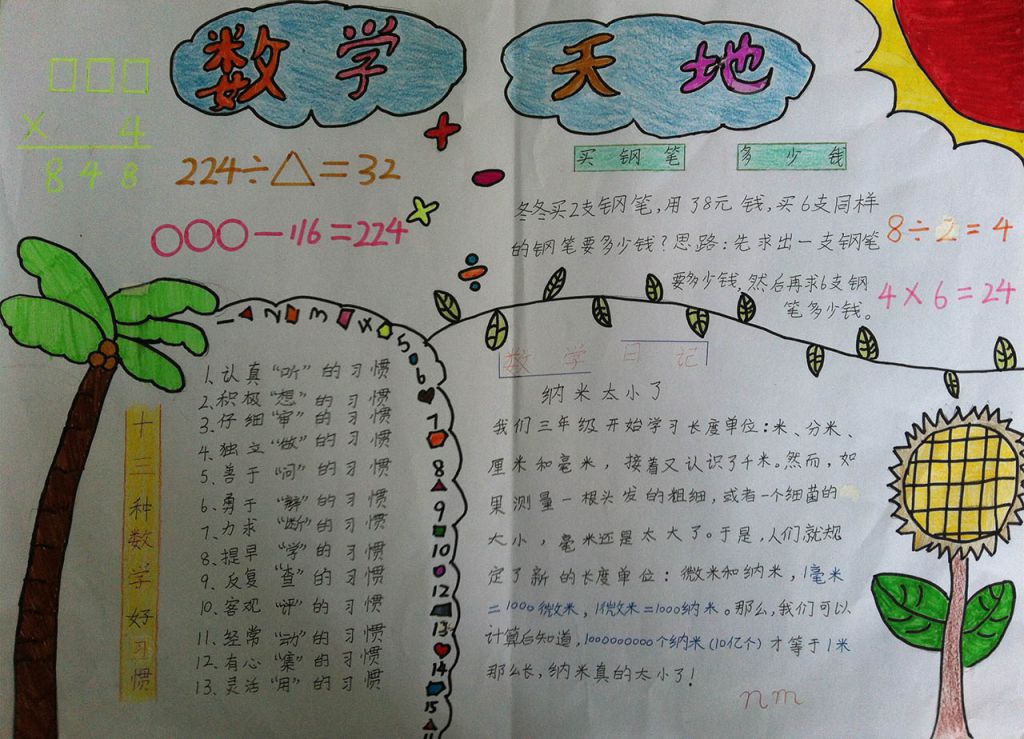 数学 天地
□□□
× 4
848
224÷△=32
○○○-116=224
买钢笔 多少钱
冬冬买2支钢笔,用了8元钱,买6支同样
的钢笔要多少钱?思路:先求出一支钢笔
要多少钱,然后再求6支钢
笔多少钱。
8÷2=4
4×6=24
1 2 3 4 5 6 7 8 9 10 12 13 14 15
十三种数学好习惯
1、认真“听”的习惯
2、积极“想”的习惯
3、仔细“审”的习惯
4、独立“做”的习惯
5、善于“问”的习惯
6、勇于“辩”的习惯
7、力求“断”的习惯
8、提早“学”的习惯
9、反复“查”的习惯
10、客观“评”的习惯
11、经常“动”的习惯
12、有心“集”的习惯
13、灵活“用”的习惯
数学日记
纳米太小了
我们三年级开始学习长度单位:米、分米、
厘米和毫米,接着又认识了千米。然而,如
果测量一根头发的粗细,或者一个细菌的
大小,毫米还是太大了。于是,人们就规
定了新的长度单位:微米和纳米,1毫米
=1000微米,1微米=1000纳米。那么,我们可以
计算后知道,1000000000个纳米(10亿个)才等于1米
那么长,纳米真的太小了!
nm